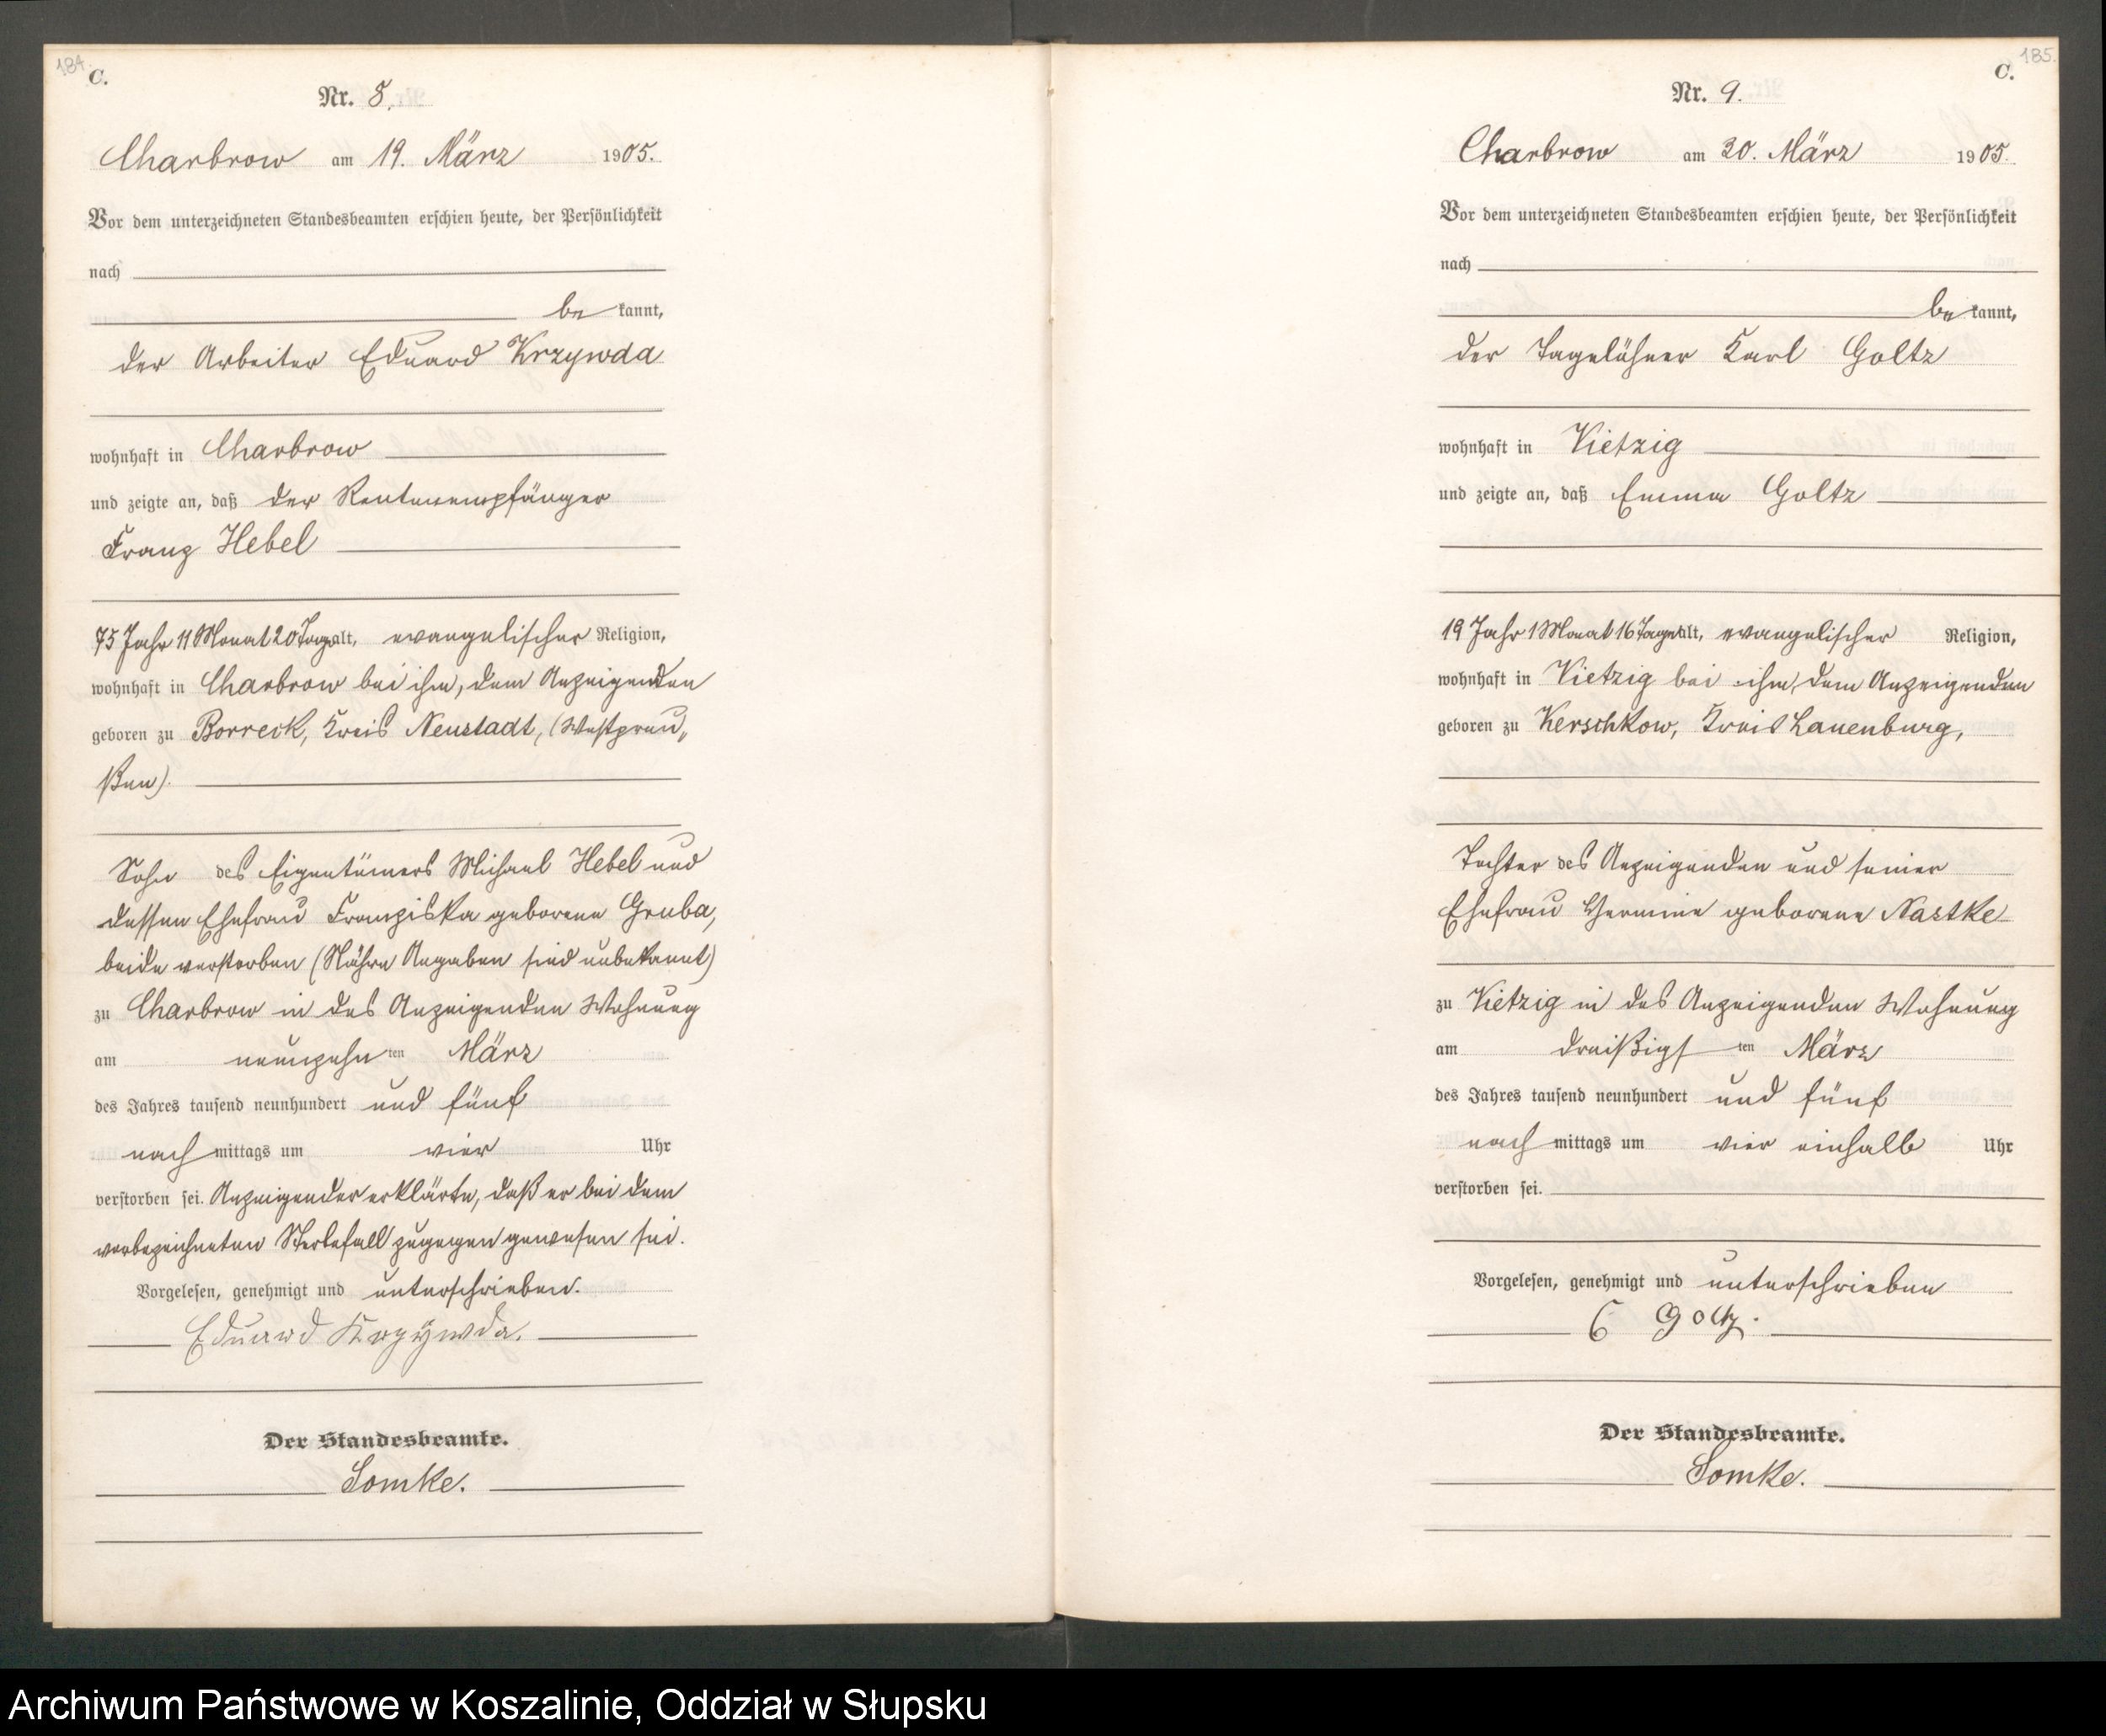 184.
C.
Nr. 8.
Charbrow am 19. März 1905.
Vor dem unterzeichneten Standesbeamten erschien heute, der Persönlichkeit
nach
be kannt,
der Arbeiter Eduard Krzywda
wohnhaft in Charbrow
und zeigte an, daß der Rentenempfänger
Franz Hebel
75 Jahr 11 Monat 20 Tage alt, evangelischer Religion,
wohnhaft in Charbrow bei ihm, dem Anzeigenden
geboren zu Borreck, Kreis Neustadt, (Westpreu„
ßen).
Sohn des Eigentümers Michael Hebel und
dessen Ehefrau Franziska geborene Gruba,
beide verstorben (Nähre Angaben sind unbekannt)
zu Charbrow in des Anzeigenden Wohnung
am neunzehn ten März
des Jahres tausend neunhundert und fünf
nach mittags um vier Uhr
verstorben sei. Anzeigender erklärte, daß er bei dem
vorbezeichneten Sterbefall zugegen gewesen sei.
Vorgelesen, genehmigt und unterschrieben.
Eduard Krzÿwda.
Der Standesbeamte.
Somke.
185.
C.
Nr. 9.
Charbrow am 30. März 1905.
Vor dem unterzeichneten Standesbeamten erschien heute, der Persönlichkeit
nach
be kannt,
der Tagelöhner Karl Goltz
wohnhaft in Vietzig
und zeigte an, daß Emma Goltz
19 Jahr 1 Monat 16 Tage alt, evangelischer Religion,
wohnhaft in Vietzig bei ihm, dem Anzeigenden
geboren zu Kerschkow, Kreis Lauenburg,
Tochter des Anzeigenden und seiner
Ehefrau Hermine geborene Nastke
zu Vietzig in des Anzeigenden Wohnung
am dreißigst ten März
des Jahres tausend neunhundert und fünf
nach mittags um vier einhalb Uhr
verstorben sei.
Vorgelesen, genehmigt und unterschrieben
C Goltz.
Der Standesbeamte.
Somke.
Archiwum Państwowe w Koszalinie, Oddział w Słupsku